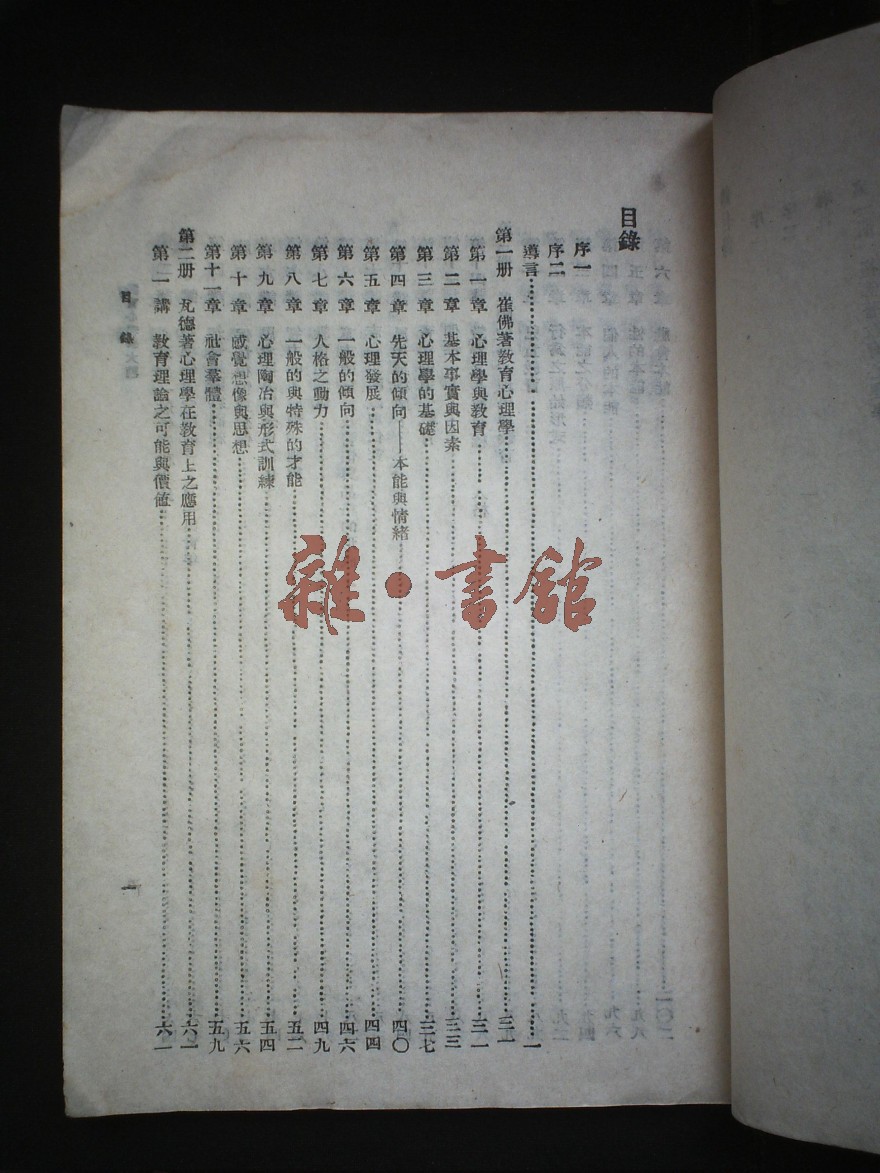 目錄
序一
序二
導言……一
第一册 崔佛著教育心理學……三一
第一章 心理學與教育……三一
第二章 基本事實與因素……三三
第三章 心理學的基礎……三七
第四章 先天的傾向——本能與情緒……四〇
第五章 心理發展……四四
第六章 一般的傾向……四六
第七章 人格之動力……四九
第八章 一般的與特殊的才能……五二
第九章 心理陶冶與形式訓練……五四
第十章 感覺想像與思想……五六
第十一章 社會羣體……五九
第二册 瓦德著心理學在教育上之應用……六一
第一講 教育理論之可能與價值……六一
目錄
一
雜·書館